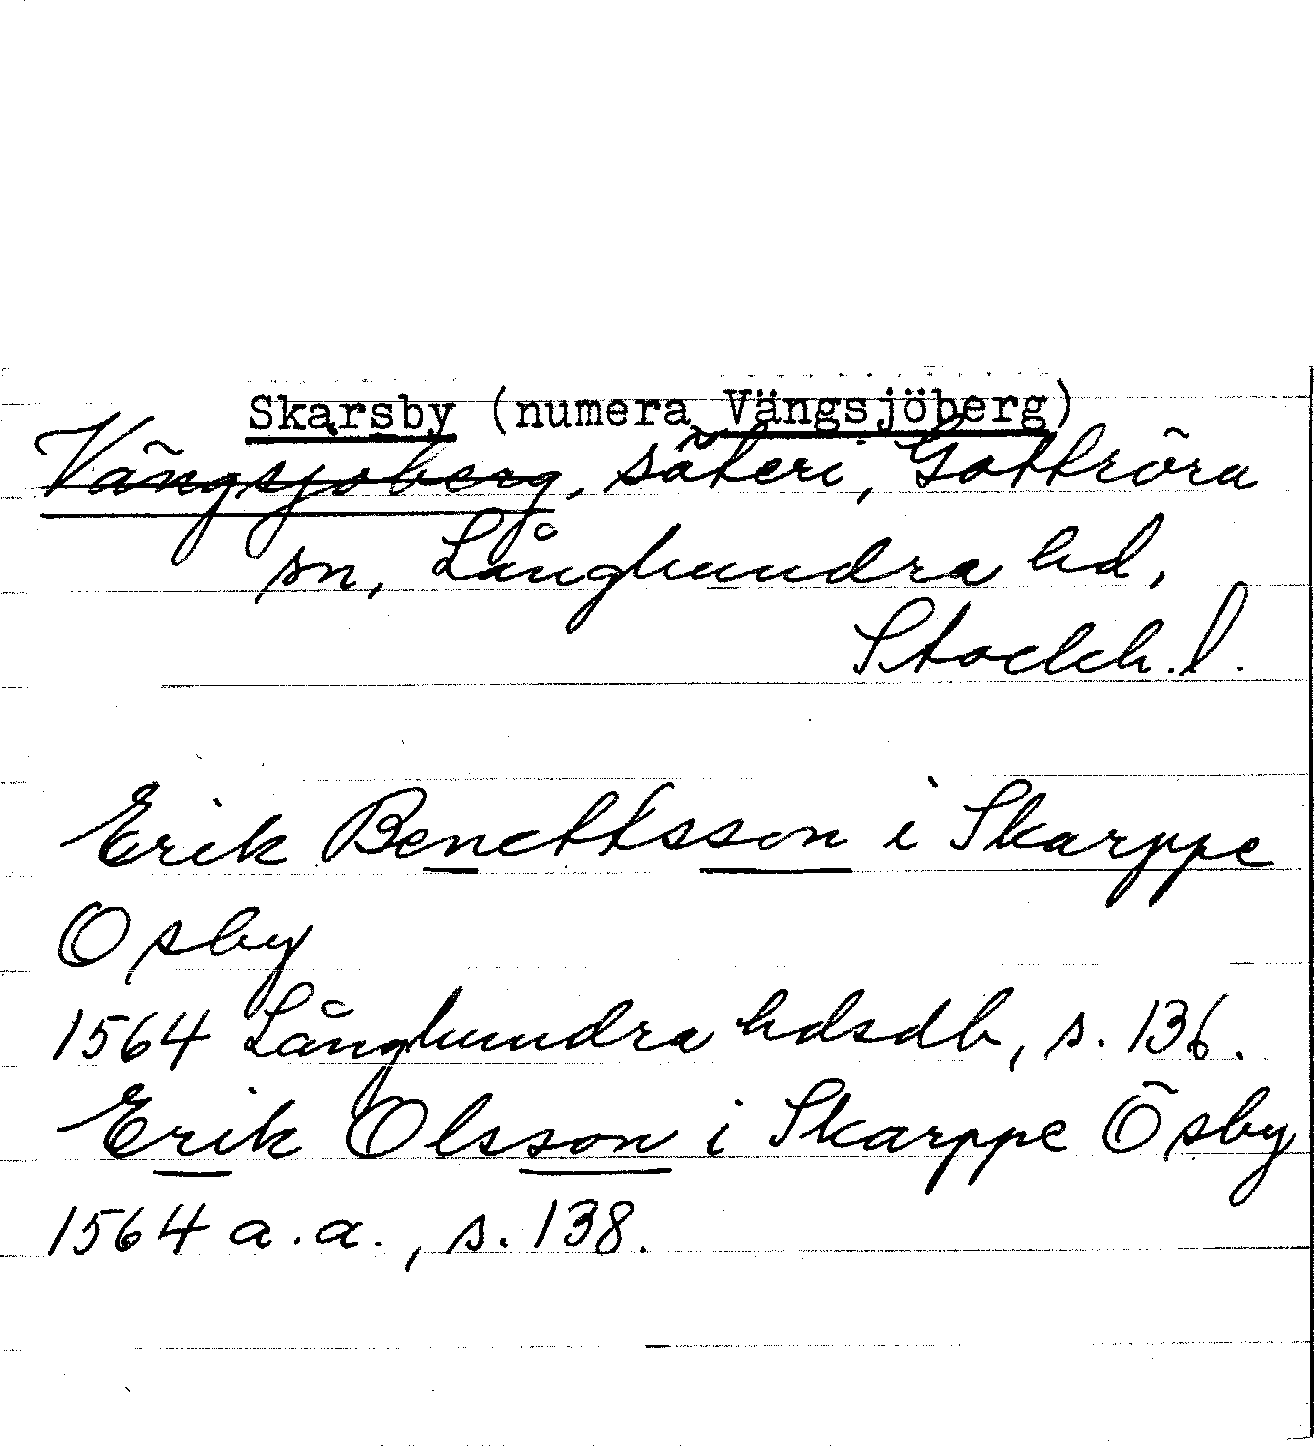 Skarsby (numera Vängsjöberg)
Vängsjöberg, säteri, Gottröra
sn, Långhundra hd,
Stockh. l.
Erik Benettsson i Skarppe
Osby
1564 Långhundra hdsdb, s. 136.
Erik Olsson i Skarppe Ösby
1564 a.a., s. 138.